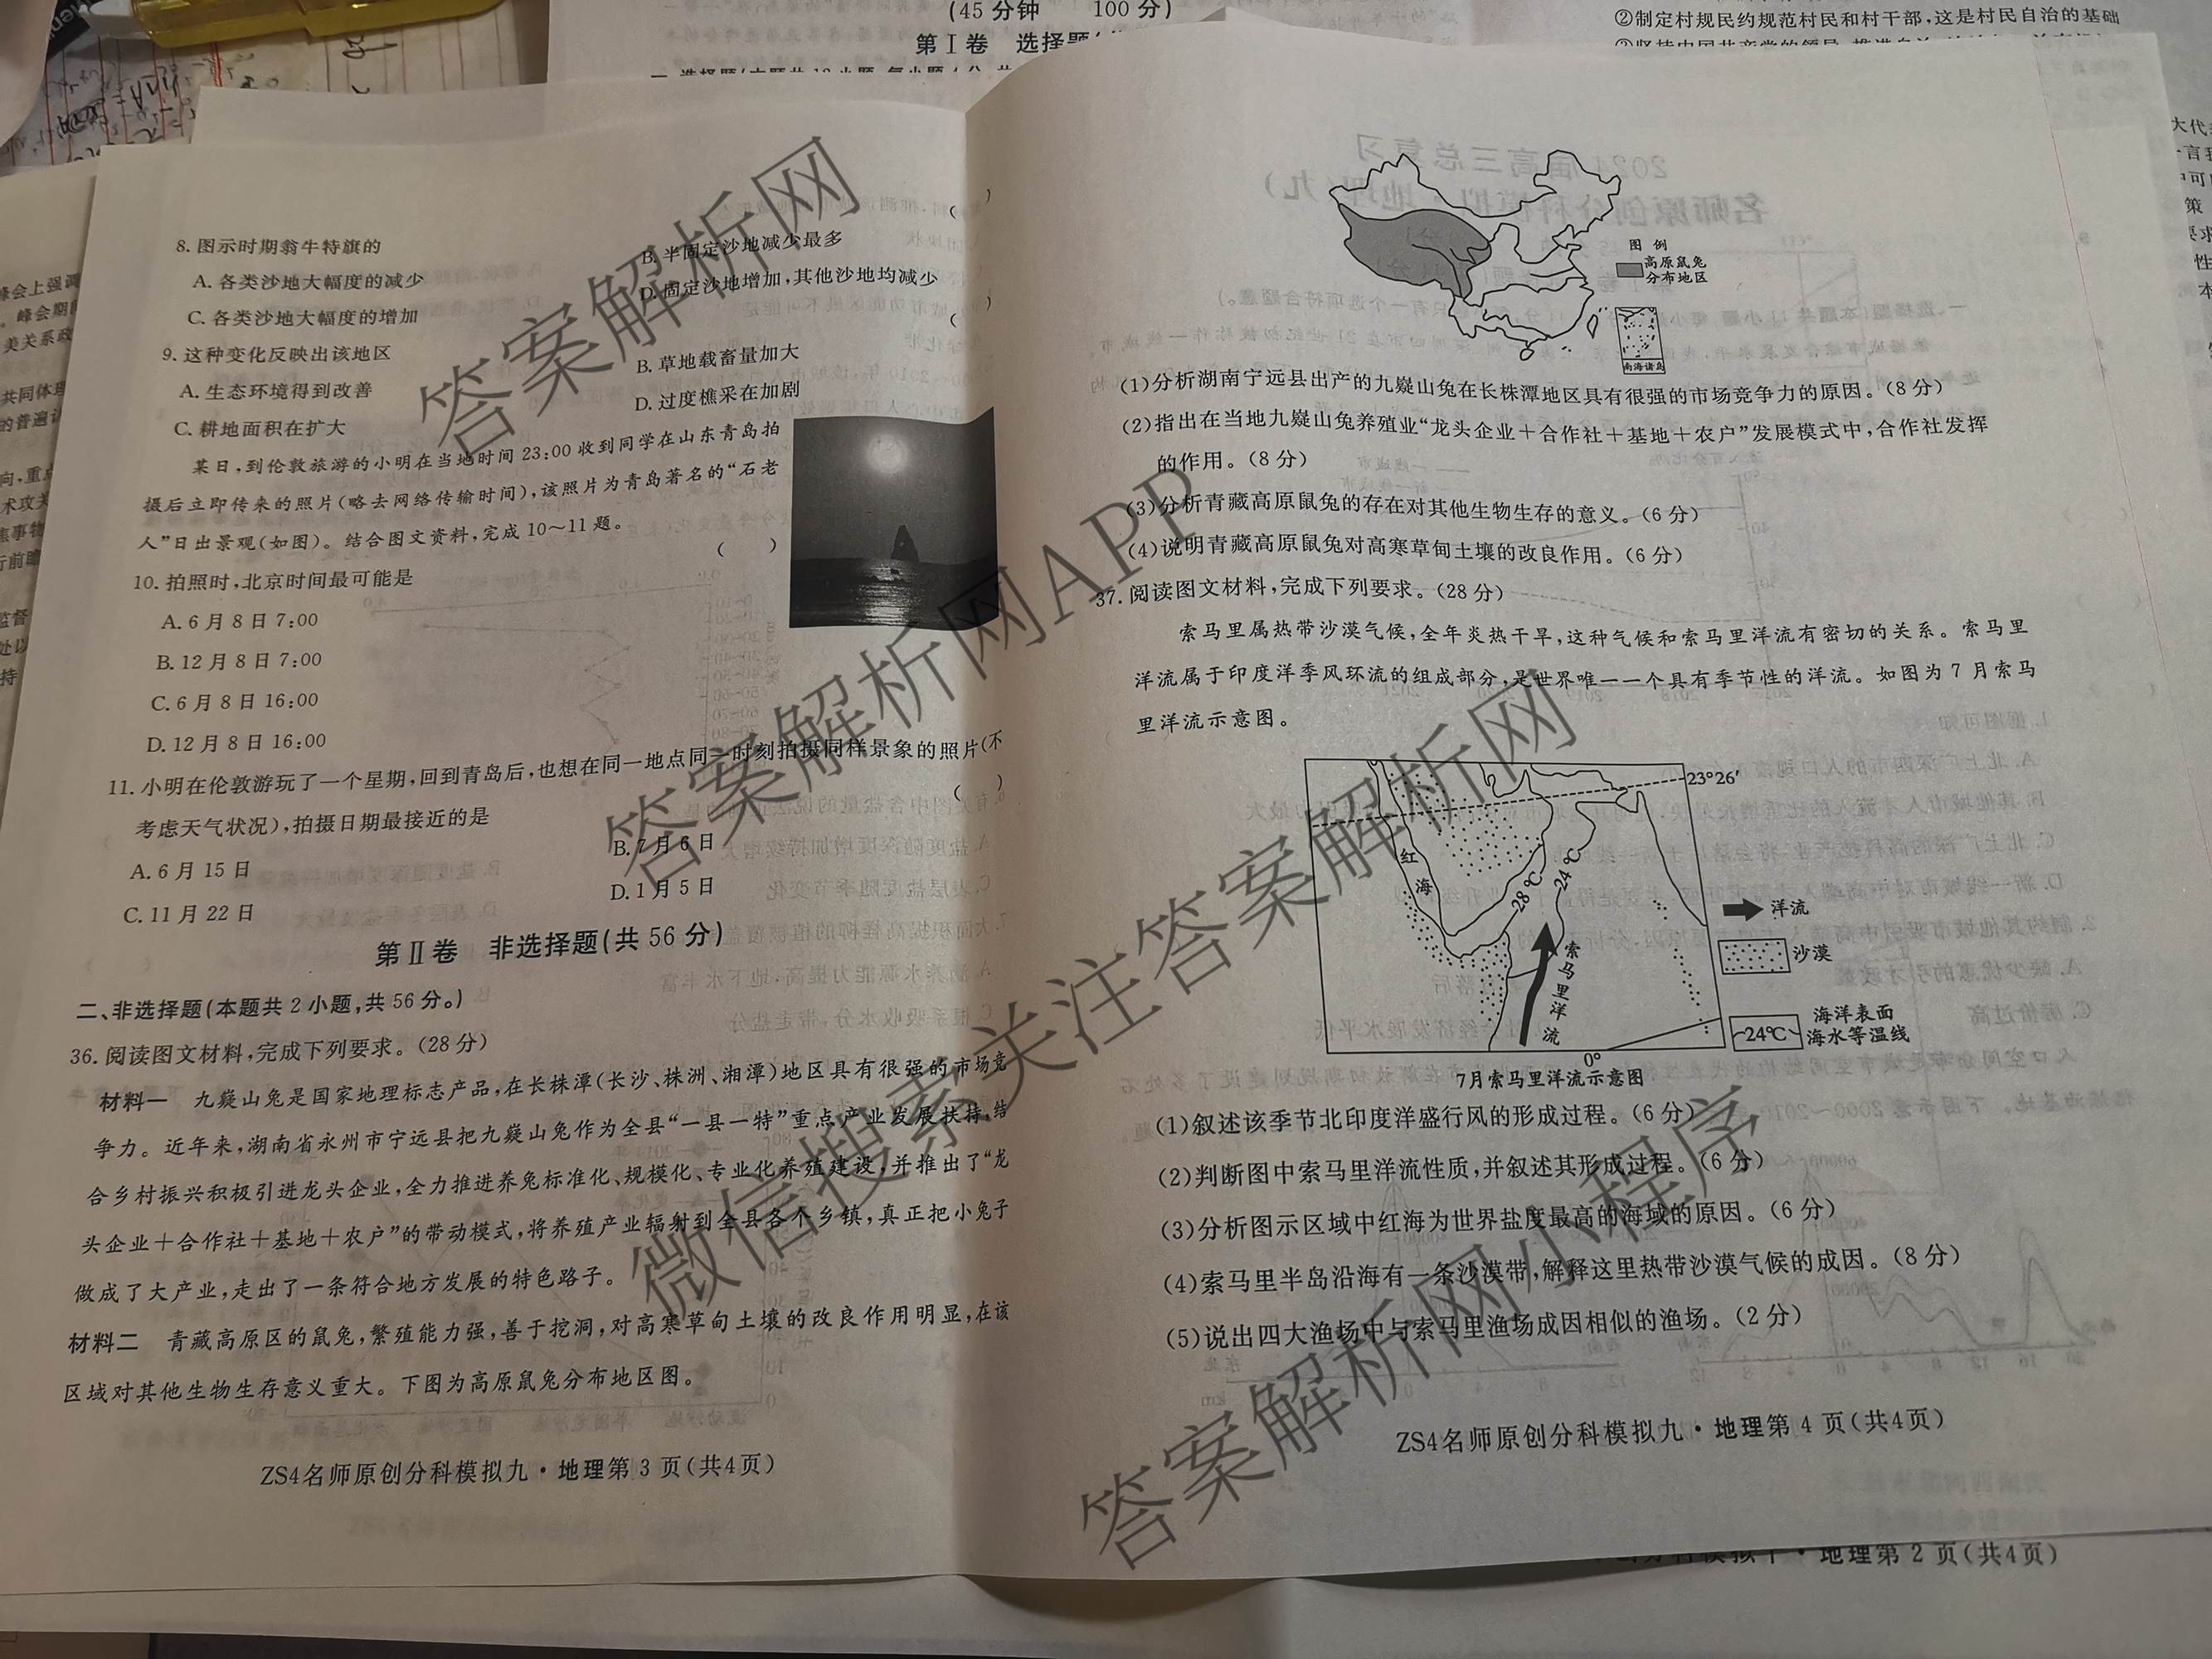 (45分钟 100分)
第Ⅰ卷 选择题
②制定村规民约规范村民和村干部,这是村民自治的基础
8. 图示时期翁牛特旗的 ( )
A. 各类沙地大幅度的减少
B. 半固定沙地减少最多
C. 各类沙地大幅度的增加
D. 固定沙地增加,其他沙地均减少
9. 这种变化反映出该地区 ( )
A. 生态环境得到改善
B. 草地载畜量加大
C. 耕地面积在扩大
D. 过度樵采在加剧
某日,到伦敦旅游的小明在当地时间 23:00 收到同学在山东青岛拍
摄后立即传来的照片(略去网络传输时间),该照片为青岛著名的“石老
人”日出景观(如图)。结合图文资料,完成 10~11 题。
10. 拍照时,北京时间最可能是 ( )
A. 6 月 8 日 7:00
B. 12 月 8 日 7:00
C. 6 月 8 日 16:00
D. 12 月 8 日 16:00
11. 小明在伦敦游玩了一个星期,回到青岛后,也想在同一地点同一时刻拍摄同样景象的照片(不
考虑天气状况),拍摄日期最接近的是 ( )
A. 6 月 15 日
B. 7 月 6 日
C. 11 月 22 日
D. 1 月 5 日
第Ⅱ卷 非选择题(共 56 分)
二、非选择题(本题共 2 小题,共 56 分。)
36. 阅读图文材料,完成下列要求。(28 分)
材料一 九嶷山兔是国家地理标志产品,在长株潭(长沙、株洲、湘潭)地区具有很强的市场竞
争力。近年来,湖南省永州市宁远县把九嶷山兔作为全县“一县一特”重点产业发展扶持,结
合乡村振兴积极引进龙头企业,全力推进养兔标准化、规模化、专业化养殖建设,并推出了“龙
头企业+合作社+基地+农户”的带动模式,将养殖产业辐射到全县各个乡镇,真正把小兔子
做成了大产业,走出了一条符合地方发展的特色路子。
材料二 青藏高原区的鼠兔,繁殖能力强,善于挖洞,对高寒草甸土壤的改良作用明显,在该
区域对其他生物生存意义重大。下图为高原鼠兔分布地区图。
ZS4名师原创分科模拟九·地理第 3 页(共4页)
图 例
高原鼠兔
分布地区
南海诸岛
(1)分析湖南宁远县出产的九嶷山兔在长株潭地区具有很强的市场竞争力的原因。(8 分)
(2)指出在当地九嶷山兔养殖业“龙头企业+合作社+基地+农户”发展模式中,合作社发挥
的作用。(8 分)
(3)分析青藏高原鼠兔的存在对其他生物生存的意义。(6 分)
(4)说明青藏高原鼠兔对高寒草甸土壤的改良作用。(6 分)
37. 阅读图文材料,完成下列要求。(28 分)
索马里属热带沙漠气候,全年炎热干旱,这种气候和索马里洋流有密切的关系。索马里
洋流属于印度洋季风环流的组成部分,是世界唯一一个具有季节性的洋流。如图为 7 月索马
里洋流示意图。
23°26′
红
海
28℃
24℃
索马里洋流
0°
洋流
沙漠
24℃
海洋表面
海水等温线
7月索马里洋流示意图
(1)叙述该季节北印度洋盛行风的形成过程。(6 分)
(2)判断图中索马里洋流性质,并叙述其形成过程。(6 分)
(3)分析图示区域中红海为世界盐度最高的海域的原因。(6 分)
(4)索马里半岛沿海有一条沙漠带,解释这里热带沙漠气候的成因。(8 分)
(5)说出四大渔场中与索马里渔场成因相似的渔场。(2 分)
ZS4名师原创分科模拟九·地理第 4 页(共4页)
地理第 2 页(共4页)
答案解析网
答案解析网APP
微信搜索关注答案解析网
答案解析网小程序